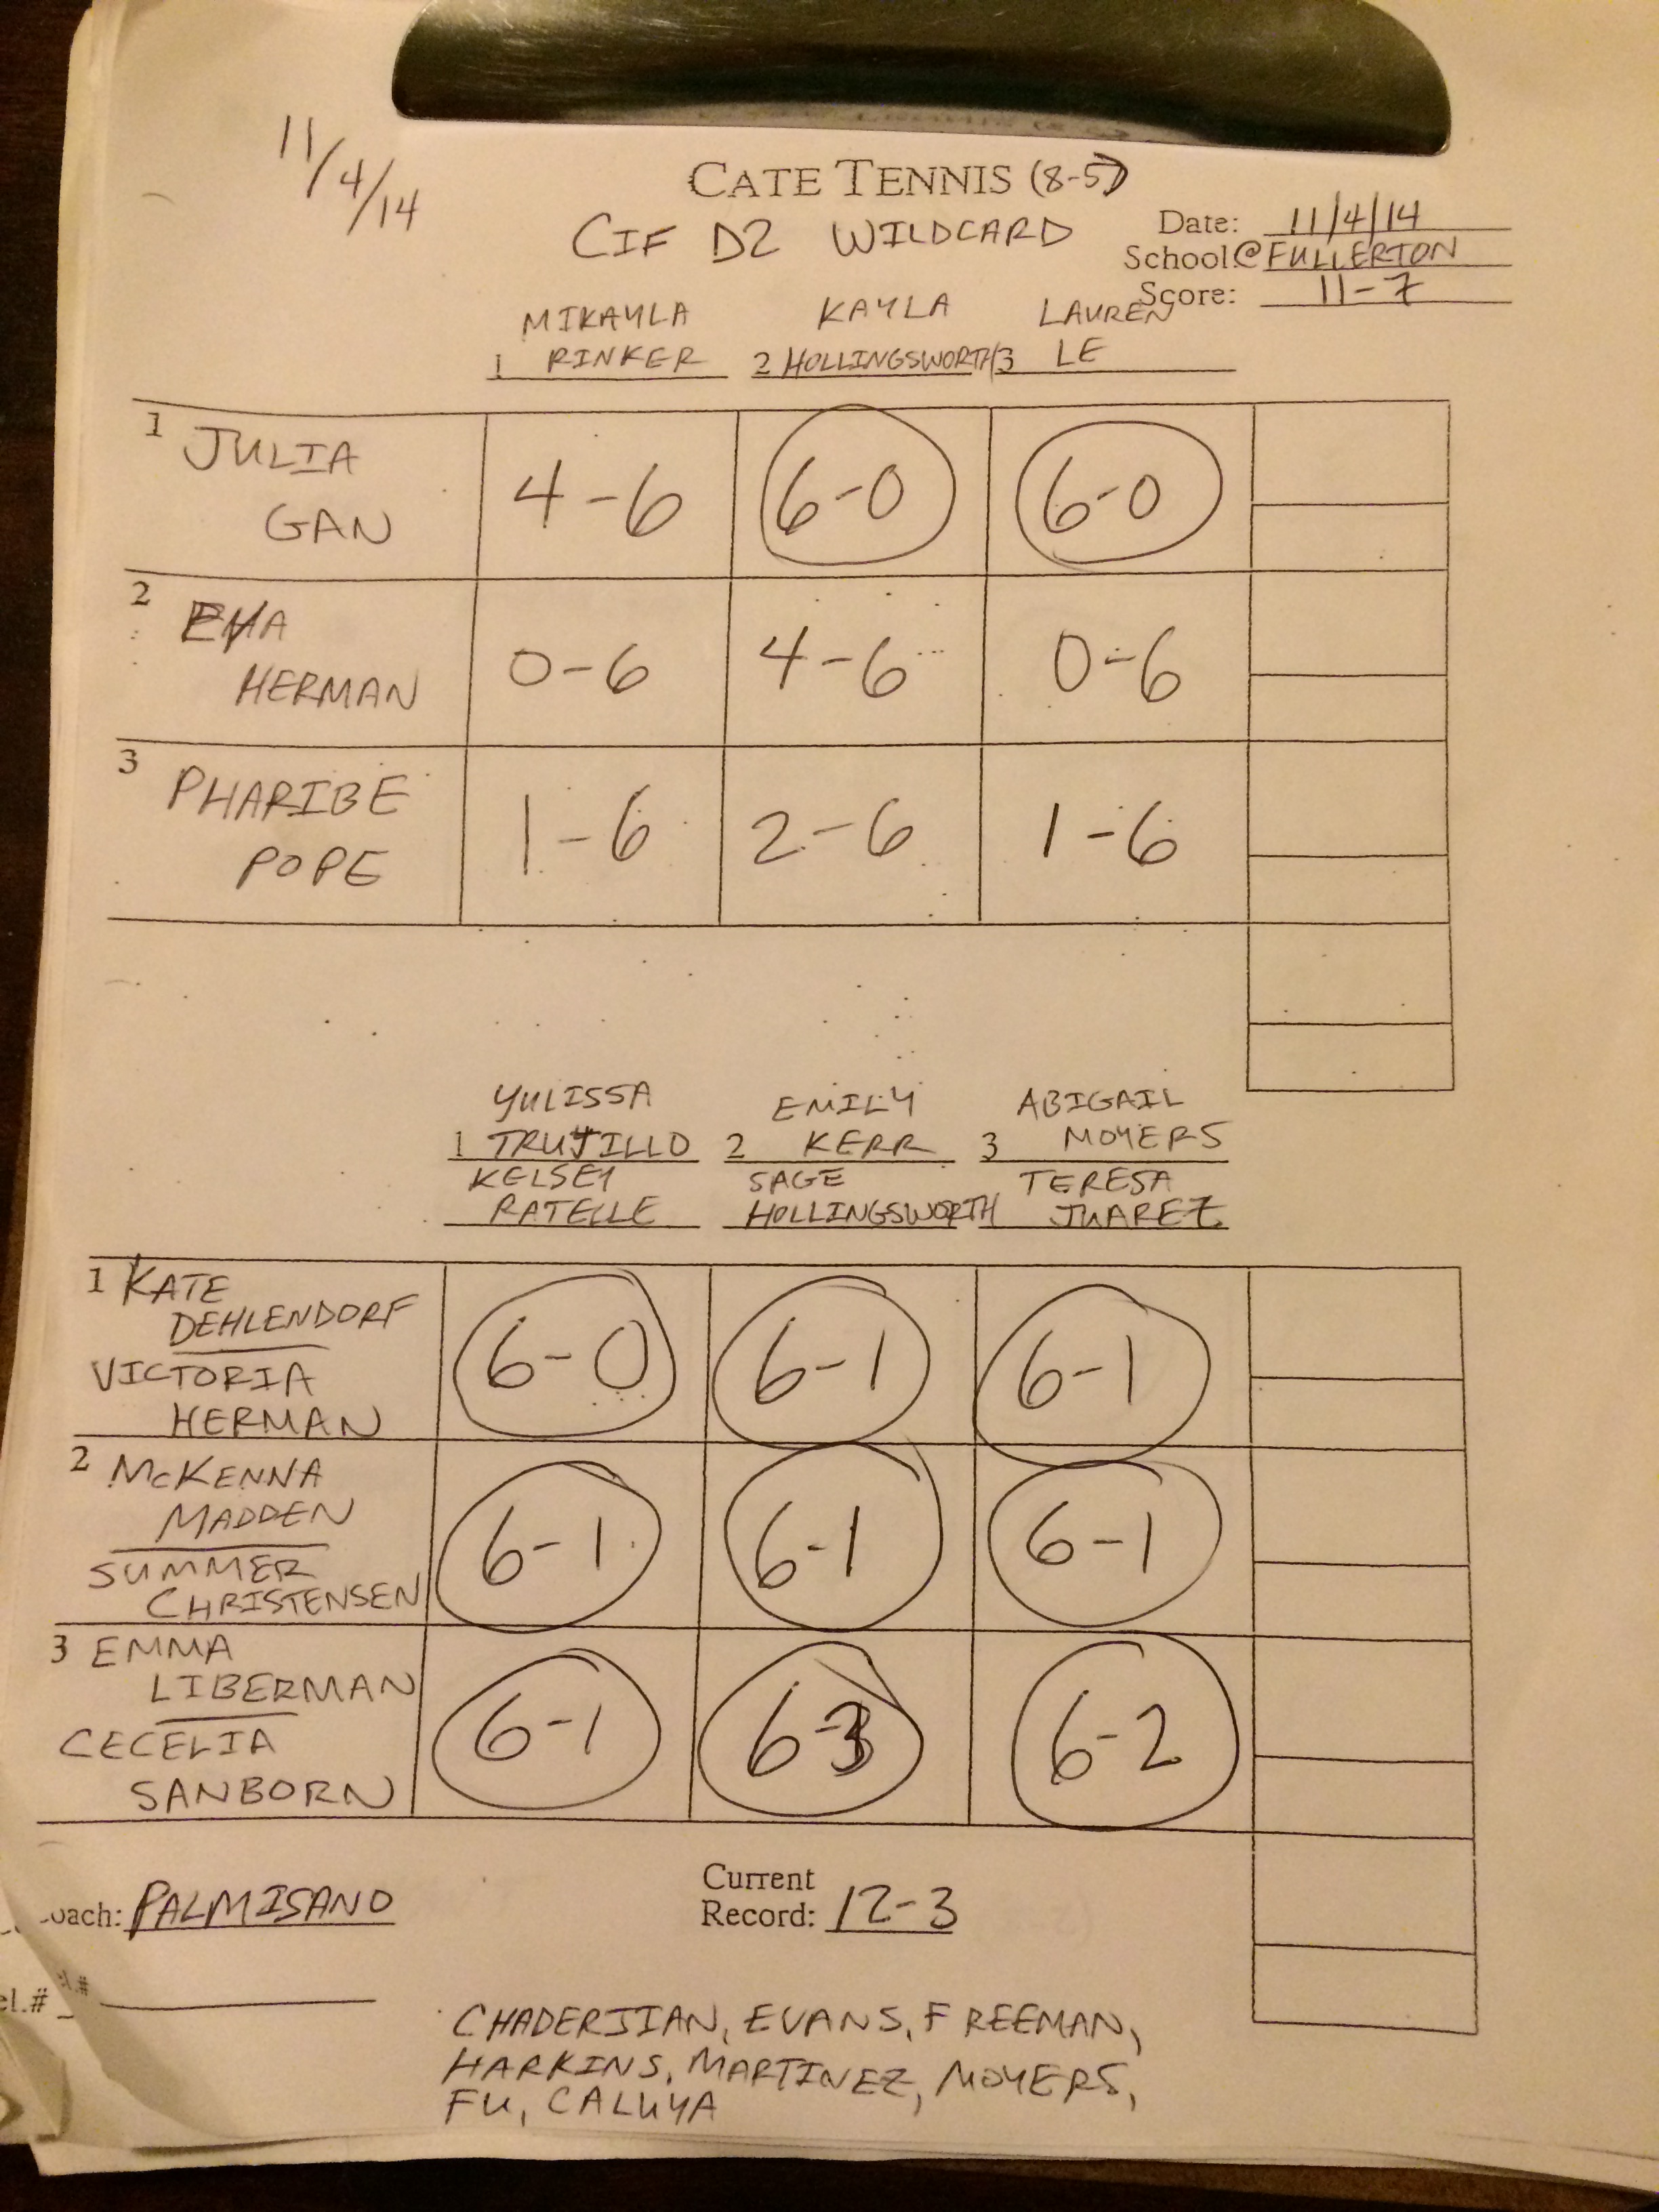 11/4/14
CATE TENNIS (8-5)
CIF D2 WILDCARD
Date: 11/4/14
School: @ FULLERTON
Score: 11-7
MIKAYLA KAYLA LAUREN
1 RINKER 2 HOLLINGSWORTH 3 LE
1 JULIA
GAN
4-6 6-0 6-0
2 EVA
HERMAN
0-6 4-6 0-6
3 PHARIBE
POPE
1-6 2-6 1-6
YULISSA EMILY ABIGAIL
1 TRUJILLO 2 KERR 3 MOYERS
KELSEY SAGE TERESA
RATELLE HOLLINGSWORTH JUAREZ
1 KATE
DEHLENDORF
VICTORIA
HERMAN
6-0 6-1 6-1
2 MCKENNA
MADDEN
SUMMER
CHRISTENSEN
6-1 6-1 6-1
3 EMMA
LIBERMAN
CECELIA
SANBORN
6-1 6-3 6-2
oach: PALMISANO
Current
Record: 12-3
el.#
CHADERJIAN, EVANS, FREEMAN,
HARKINS, MARTINEZ, MOYERS,
FU, CALUYA